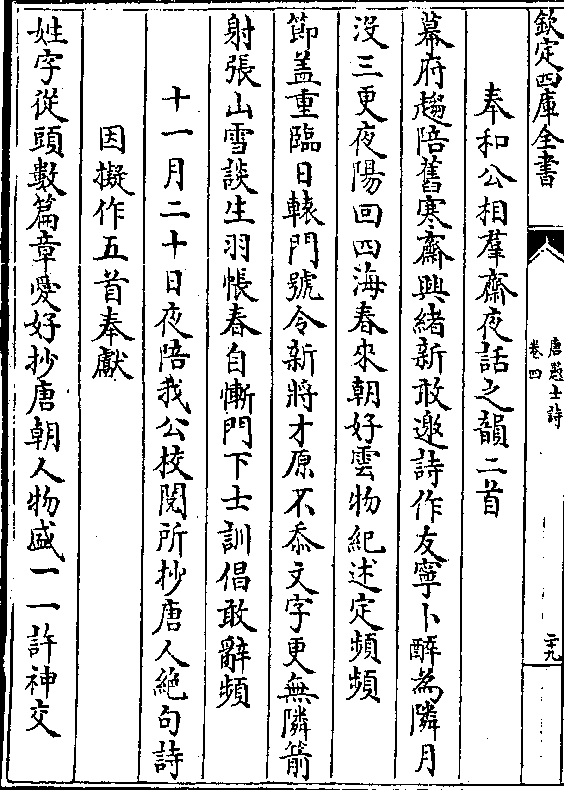 欽定四庫全書
唐愚士詩
卷四
二十九
奉和公相羣齋夜話之韻二首
幕府趨陪舊寒齋興緒新敢邀詩作友寧卜醉為隣月
没三更夜陽回四海春來朝好雲物紀述定頻頻
節盖重臨日轅門號令新將才原不忝文字更無隣箭
射張山雪談生羽帳春自慚門下士訓倡敢辭頻
十一月二十日夜陪我公校閲所抄唐人絶句詩
因擬作五首奉獻
姓字從頭數篇章愛好抄唐朝人物盛一一許神交